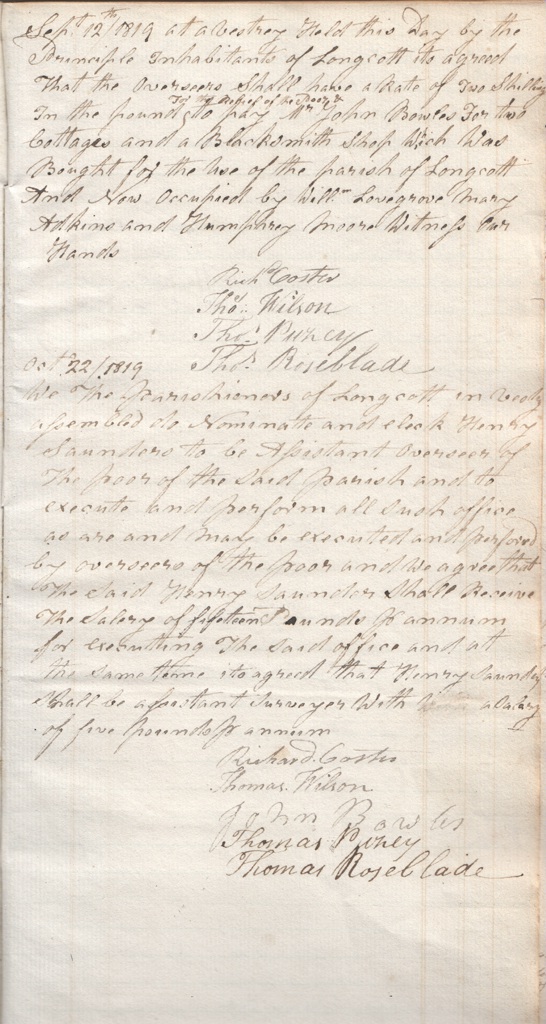 Sepr 12th/1819 at a vestrey Held this Day by the
Principle Inhabitants of Longcott its agreed
That the Overseers Shall have a Rate of Two Shilling
For the Relief of the Poor &
In the pound to pay Mr John Bowles For two
Cottages and a Blacksmith Shop Wich Was
Bought for the Use of the parish of Longcott
And Now Occupied by Willm Lovegrove Mary
Adkins and Humphrey Moore Witness Our
Hands
Richd Coster
Thos Wilson
Thos Puzey
Thos Roseblade
Octr 22/1819
We The Parishioners of Longcott in Vestry
assembled do Nominate and elect Henry
Saunders to be Assistant Overseer of
The poor of the Said Parish and to
execute and perform all Such office
as are and may be executed and performed
by overseers of the poor and We agree that
The Said Henry Saunders Shall Receive
The Salery of fifeteen Pounds Pr annum
for executting The Said office and at
the Same time its agreed that Henry Saunders
Shall be assistant Surveyer With a Salary
of five Pounds Pr annum
Richard Coster
Thomas Wilson
John Bowles
Thomas Puzey
Thomas Roseblade